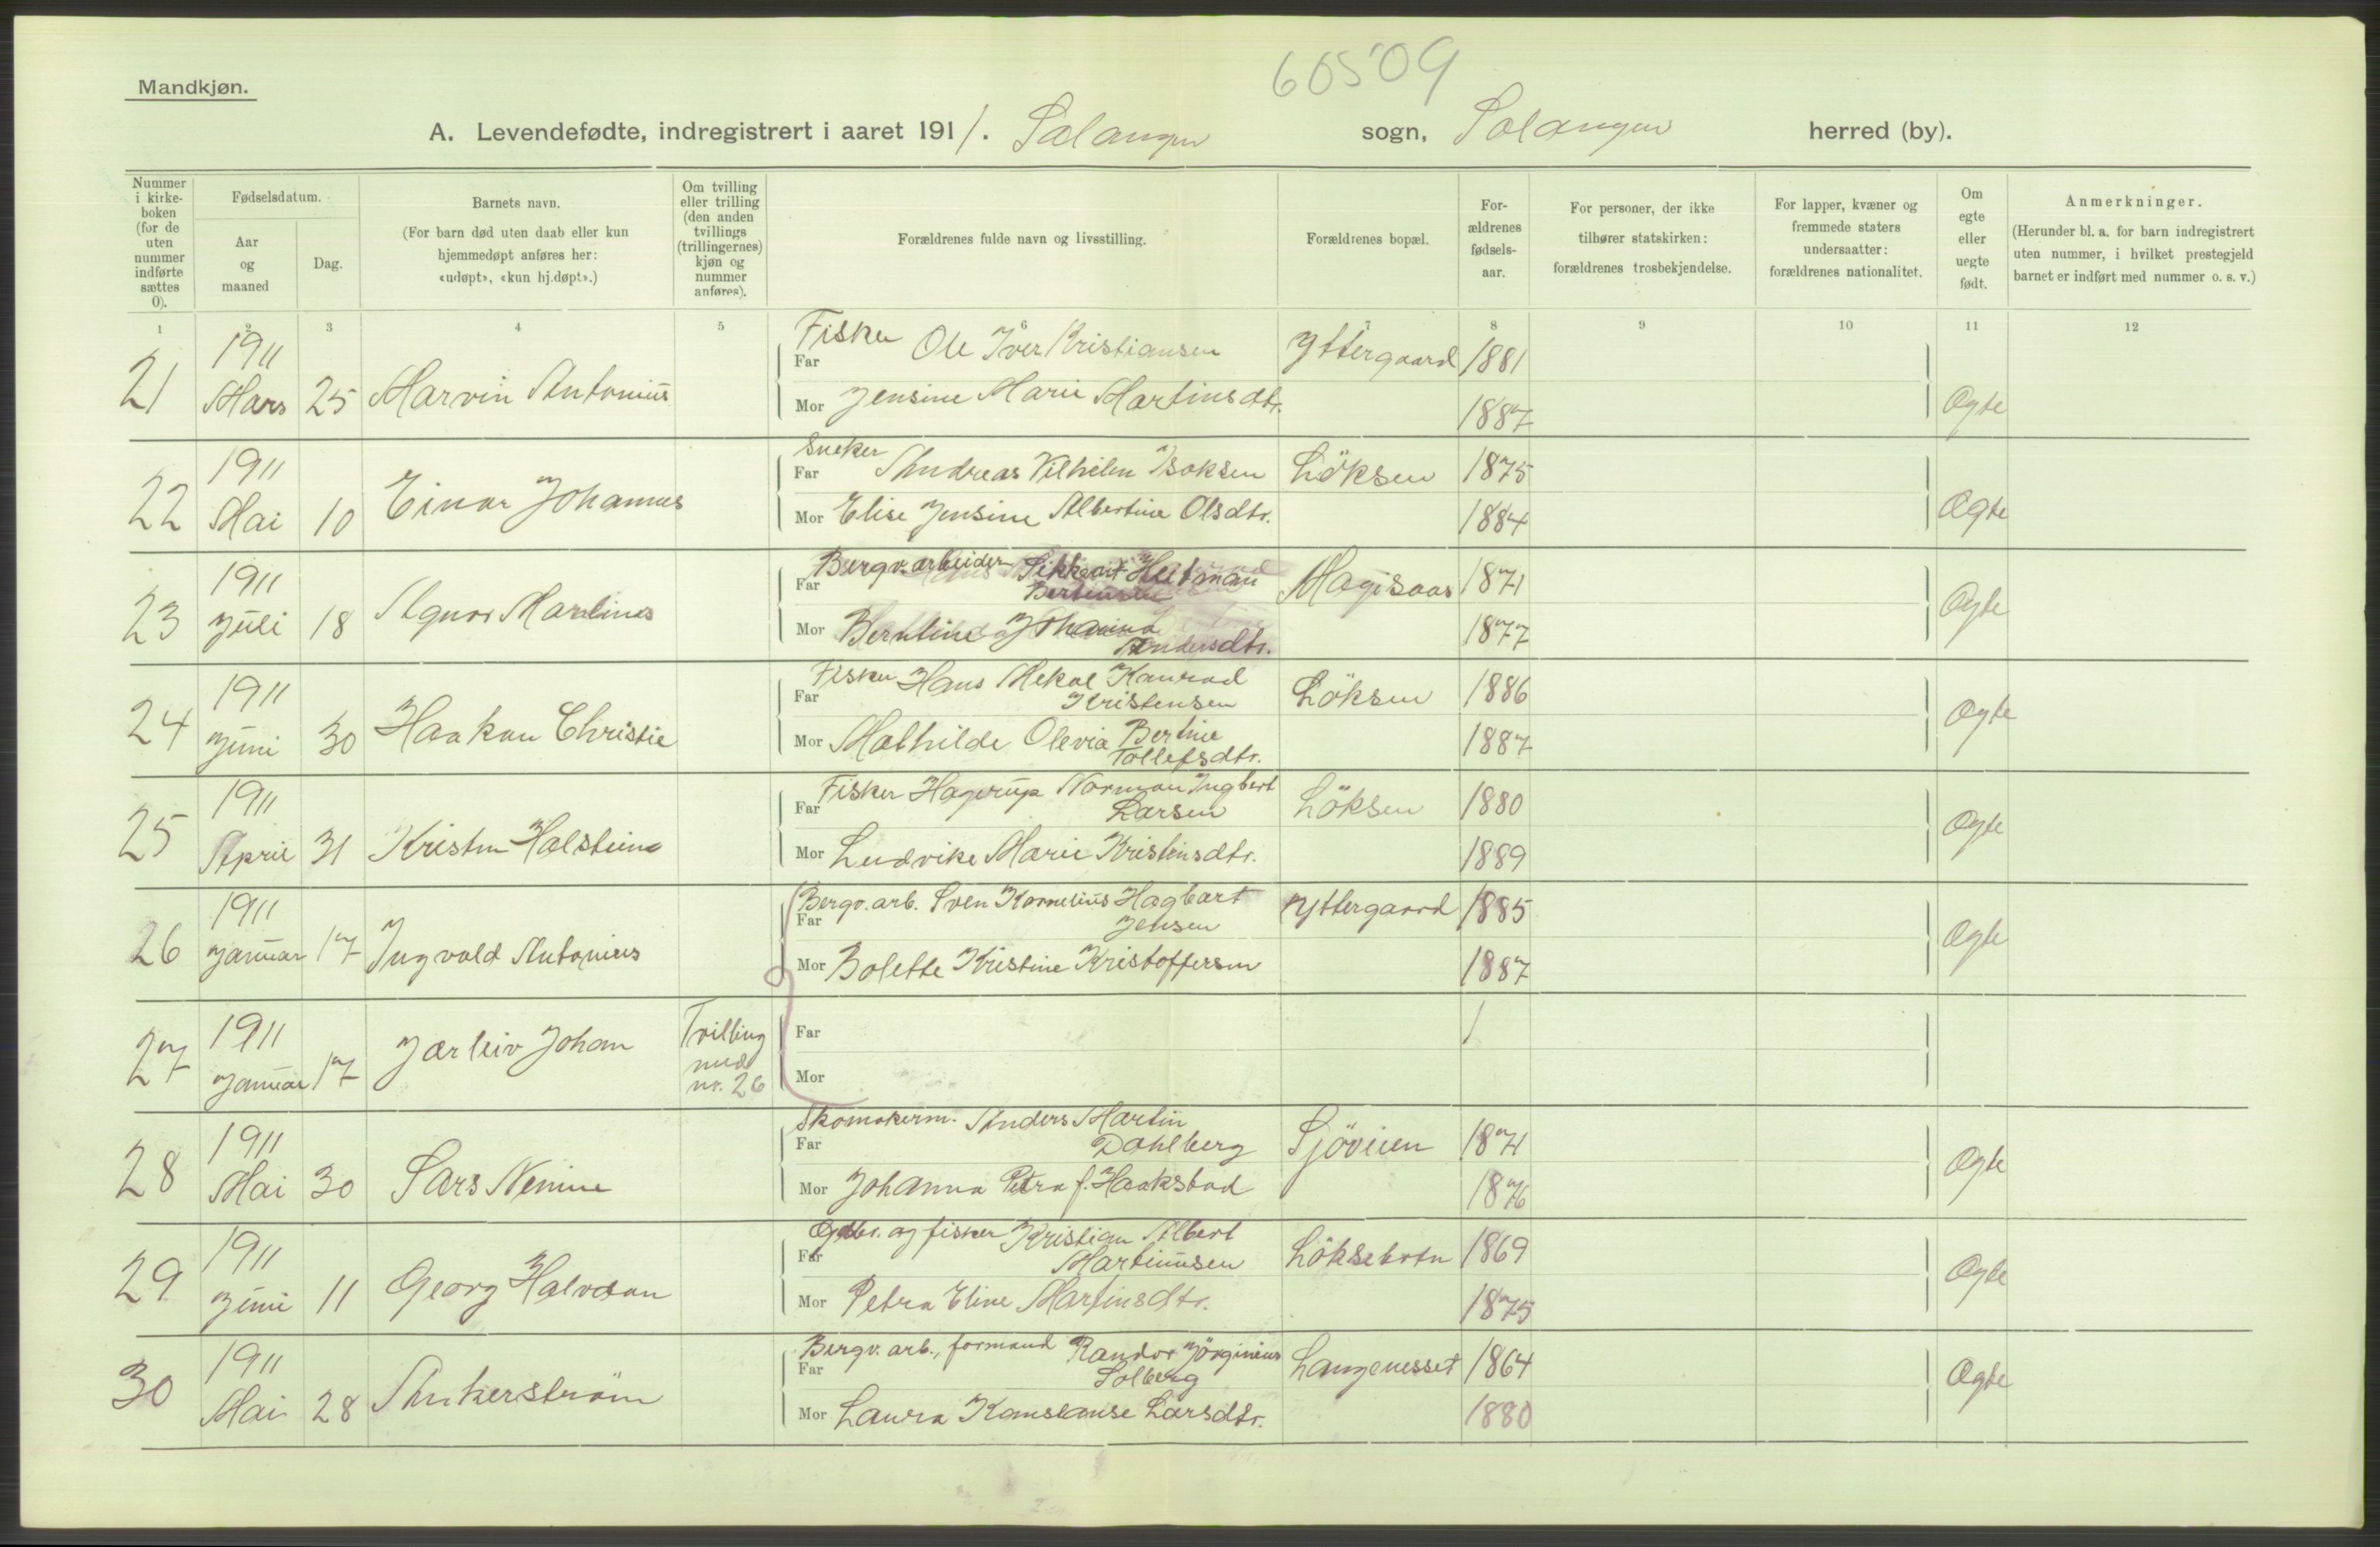 60509
Mandkjøn.
A. Levendefødte, indregistrert i aaret 1911. Salangen sogn, Salangen herred (by).
Nummer i kirke-boken (for de uten nummer indførte sættes 0).
Fødselsdatum.
Aar og maaned
Dag.
Barnets navn.
(For barn død uten daab eller kun hjemmedøpt anføres her: «udøpt», «kun hj.døpt».)
Om tvilling eller trilling (den anden tvillings (trillingernes) kjøn og nummer anføres).
Forældrenes fulde navn og livsstilling.
Forældrenes bopæl.
For-ældrenes fødsels-aar.
For personer, der ikke tilhører statskirken: forældrenes trosbekjendelse.
For lapper, kvæner og fremmede staters undersaatter: forældrenes nationalitet.
Om egte eller uegte født.
Anmerkninger.
(Herunder bl. a. for barn indregistrert uten nummer, i hvilket prestegjeld barnet er indført med nummer o. s. v.)
1 2 3 4 5 6 7 8 9 10 11 12
21 1911 Mars 25 Marvin Antonius
Fisker
Far Ole Iver Kristiansen Yttergaard 1881
Mor Jensine Marie Martinsdtr. 1887 Ægte
22 1911 Mai 10 Einar Johannes
Snekker
Far Andreas Vilhelm Isaksen Löksen 1875
Mor Elise Jensine Albertine Olsdtr. 1884 Ægte
23 1911 Juli 18 Agnor Martinus
Far Bergv.arbeider Sikkart Hertman Bertinsen 1871
Mor Berntine Johanna Andersdtr. 1877 Ægte
24 1911 Juni 30 Haakon Christie
Far Fisker Hans Mekal Konrad Kristensen Löksen 1886
Mor Mathilde Olevia Bertine Tollefsdtr. 1887 Ægte
25 1911 April 31 Kristen Halstein
Far Fisker Hagerup Norman Ingbert Larsen Löksen 1880
Mor Ludvike Marie Kristinsdtr. 1889 Ægte
26 1911 Januar 17 Ingvald Antonius
Far Bergv. arb. Sven Kornelius Hagbart Jensen Yttergaard 1885
Mor Bolette Kristine Kristoffersen 1887 Ægte
27 1911 Januar 17 Jarleiv Johan Tvilling med nr. 26
Far
Mor
28 1911 Mai 30 Lars Nenine
Skomakerm. Anders Martin
Far Dahlberg Sjöveien 1871
Mor Johanna Petra f. Haakstad 1876 Ægte
29 1911 Juni 11 Georg Halvdan
Gdbr. og fisker Kristian Albert
Far Martinusen Löksebotn 1869
Mor Petra Eline Martinsdtr. 1875 Ægte
30 1911 Mai 28 Ankerström
Bergv. arb., formand Randor Jörginius
Far Solberg Langenesset 1864
Mor Laura Konstanse Larsdtr. 1880 Ægte